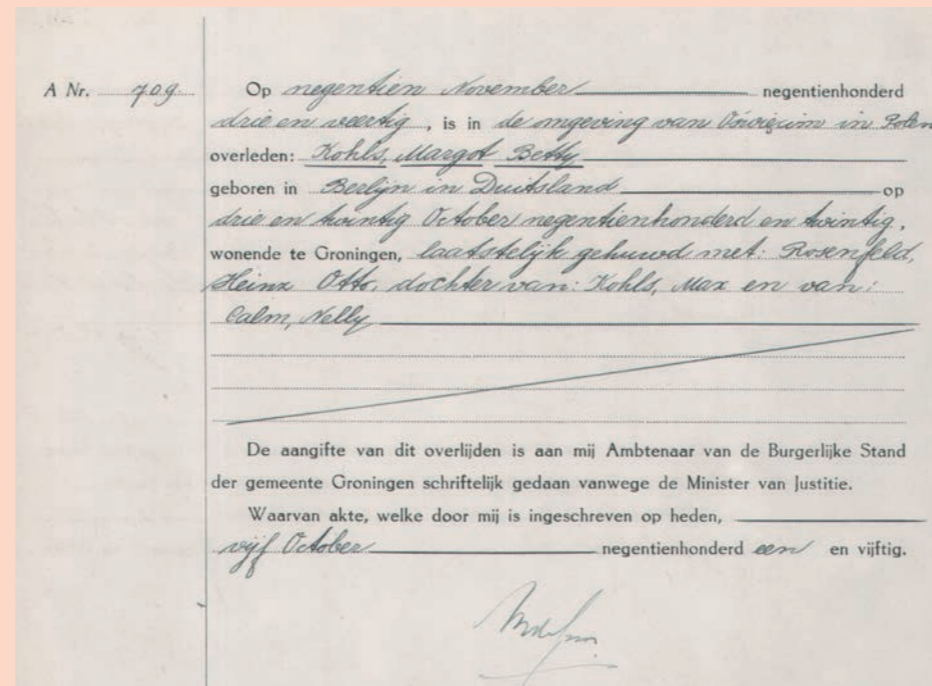 A Nr. 709 Op negentien November negentienhonderd
drie en veertig, is in de omgeving van Oświęcim in Polen
overleden: Kohls, Margot Betty
geboren in Berlijn in Duitsland op
drie en twintig October negentienhonderd en twintig,
wonende te Groningen, laatstelijk gehuwd met: Rosenfeld,
Heinz Otto, dochter van: Kohls, Max en van:
Calm, Nelly
De aangifte van dit overlijden is aan mij Ambtenaar van de Burgerlijke Stand
der gemeente Groningen schriftelijk gedaan vanwege de Minister van Justitie.
Waarvan akte, welke door mij is ingeschreven op heden,
vijf October negentienhonderd een en vijftig.